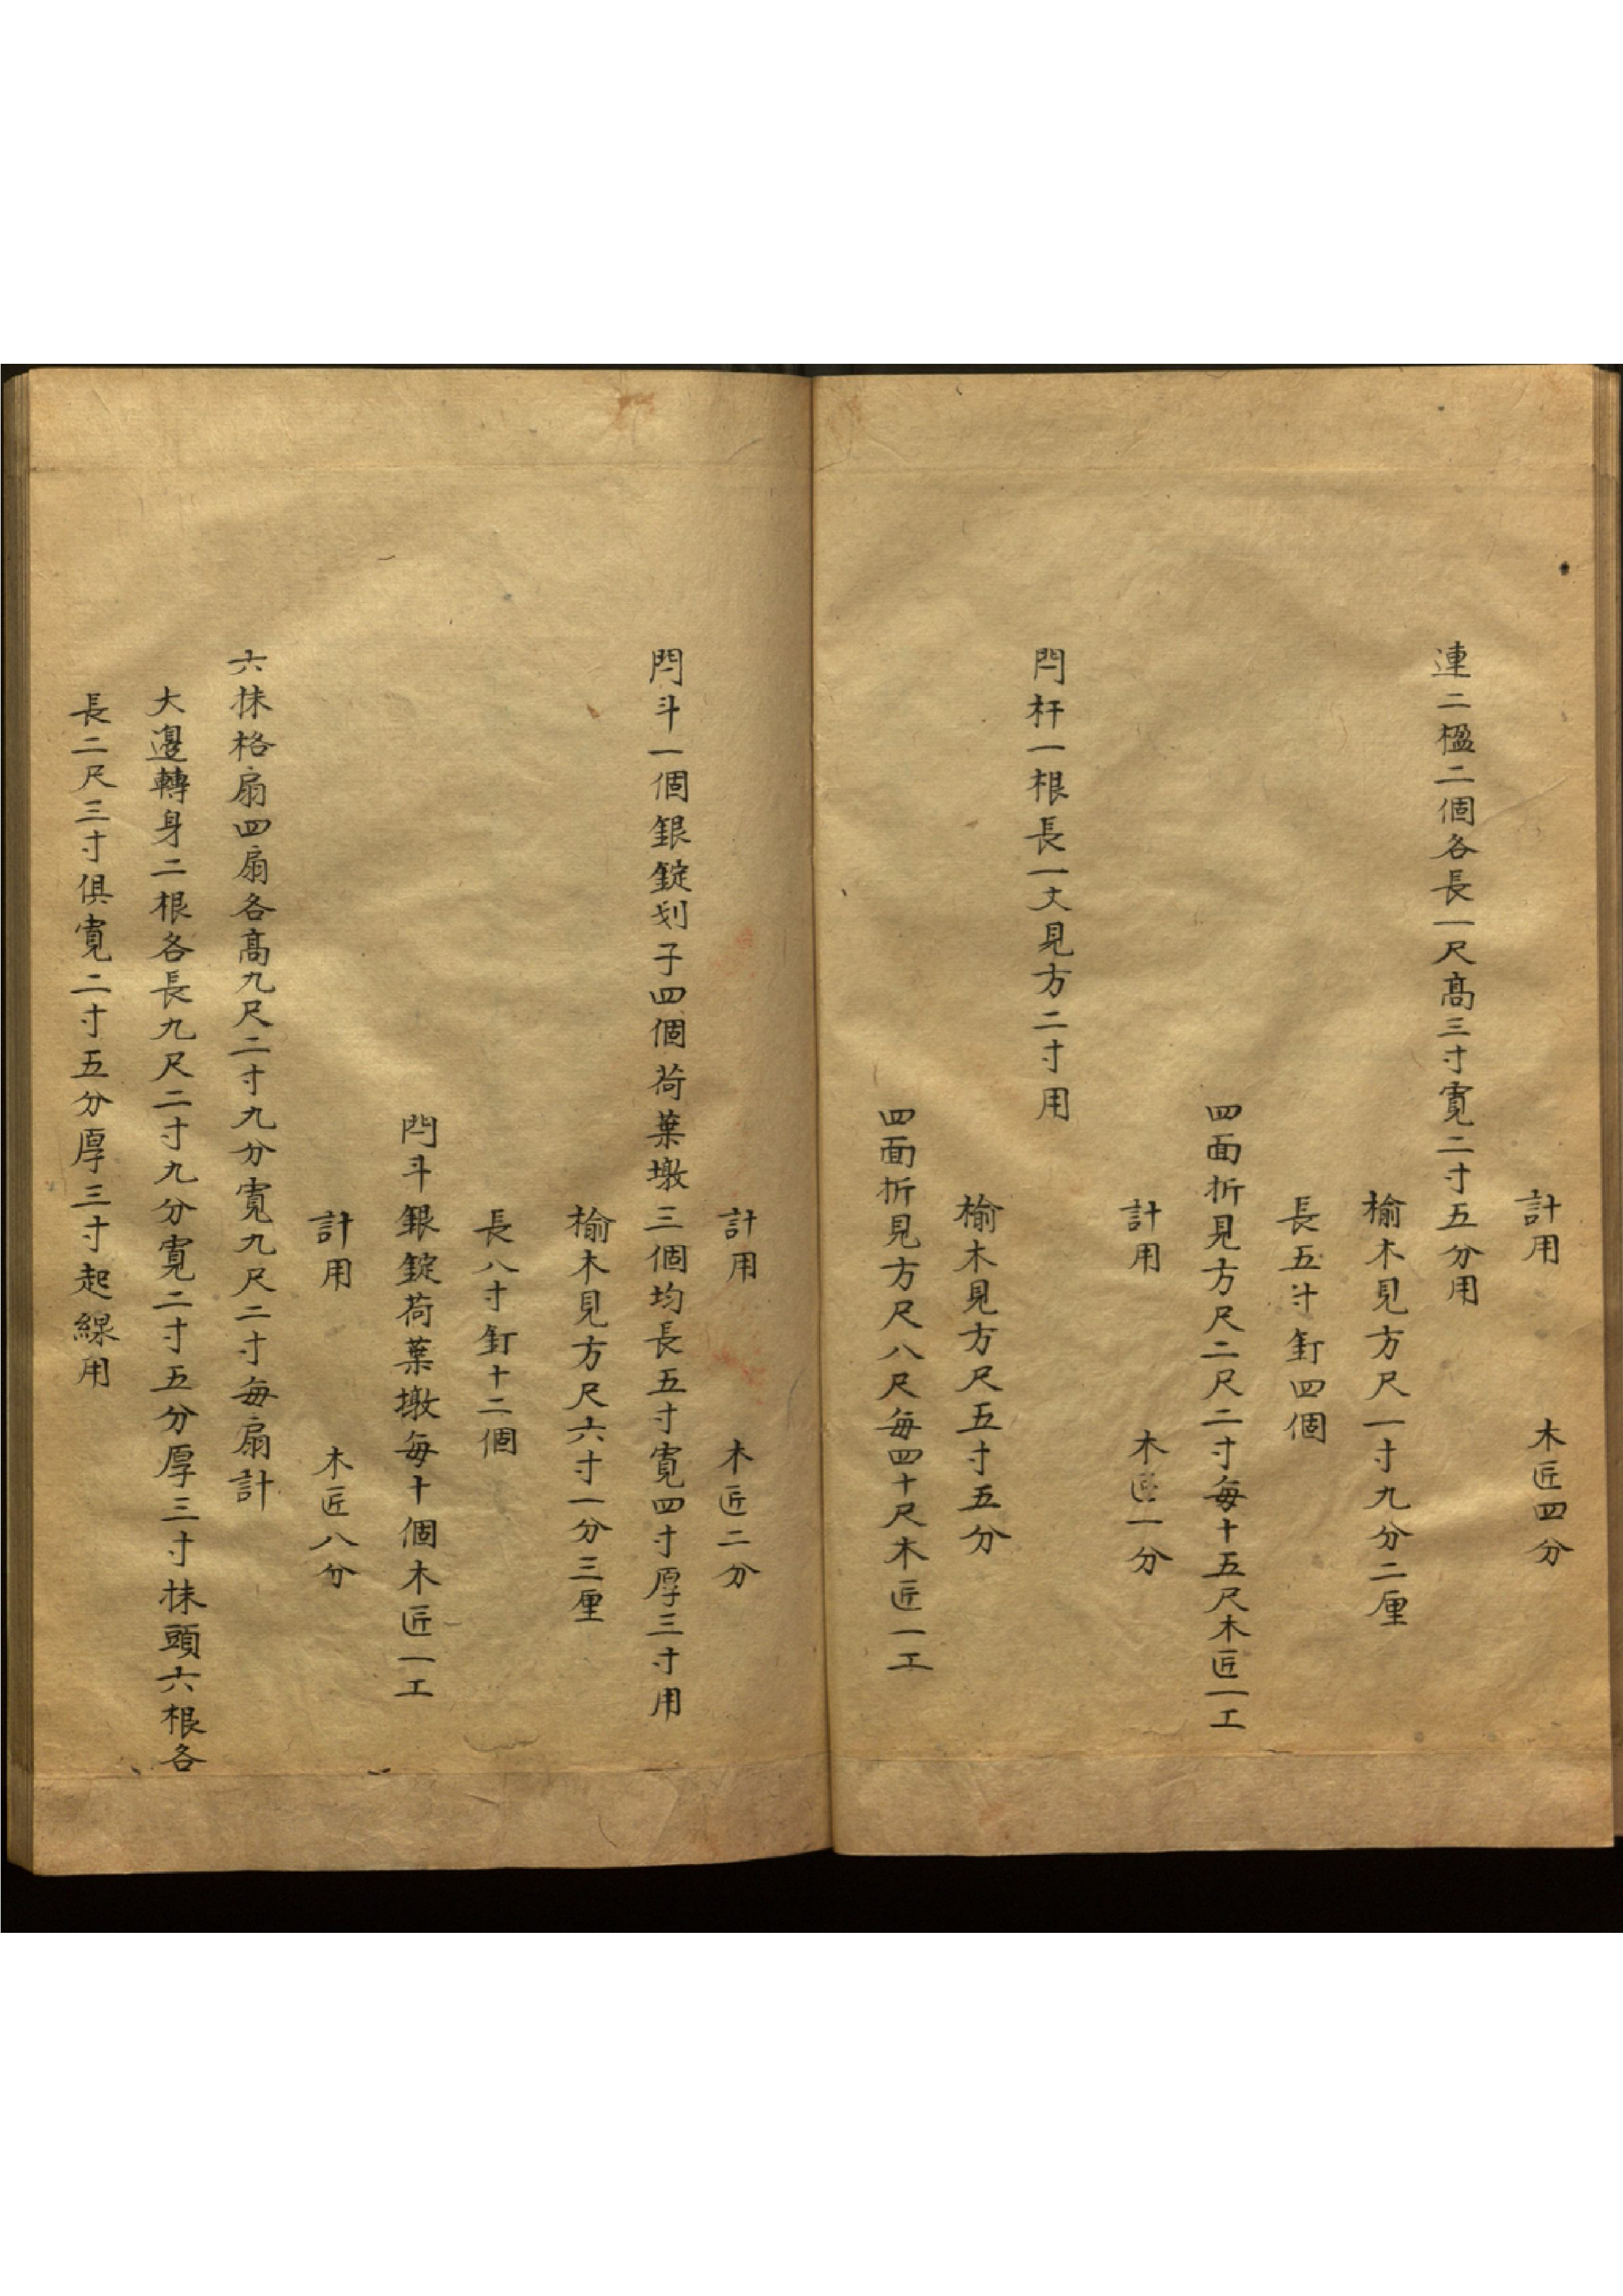 計用　木匠四分
連二楹二個各長一尺高三寸寬二寸五分用
榆木見方尺一寸九分二厘
長五寸釘四個
四面折見方尺二尺二寸每十五尺木匠一工
計用　木匠一分
閂杆一根長一丈見方二寸用
榆木見方尺五寸五分
四面折見方尺八尺每四十尺木匠一工
計用　木匠二分
閂斗一個銀錠划子四個荷葉墩三個均長五寸寬四寸厚三寸用
榆木見方尺六寸一分三厘
長八寸釘十二個
閂斗銀錠荷葉墩每十個木匠一工
計用　木匠八分
六抹格扇四扇各高九尺二寸九分寬九尺二寸每扇計
大邊轉身二根各長九尺二寸九分寬二寸五分厚三寸抹頭六根各
長二尺三寸俱寬二寸五分厚三寸起線用